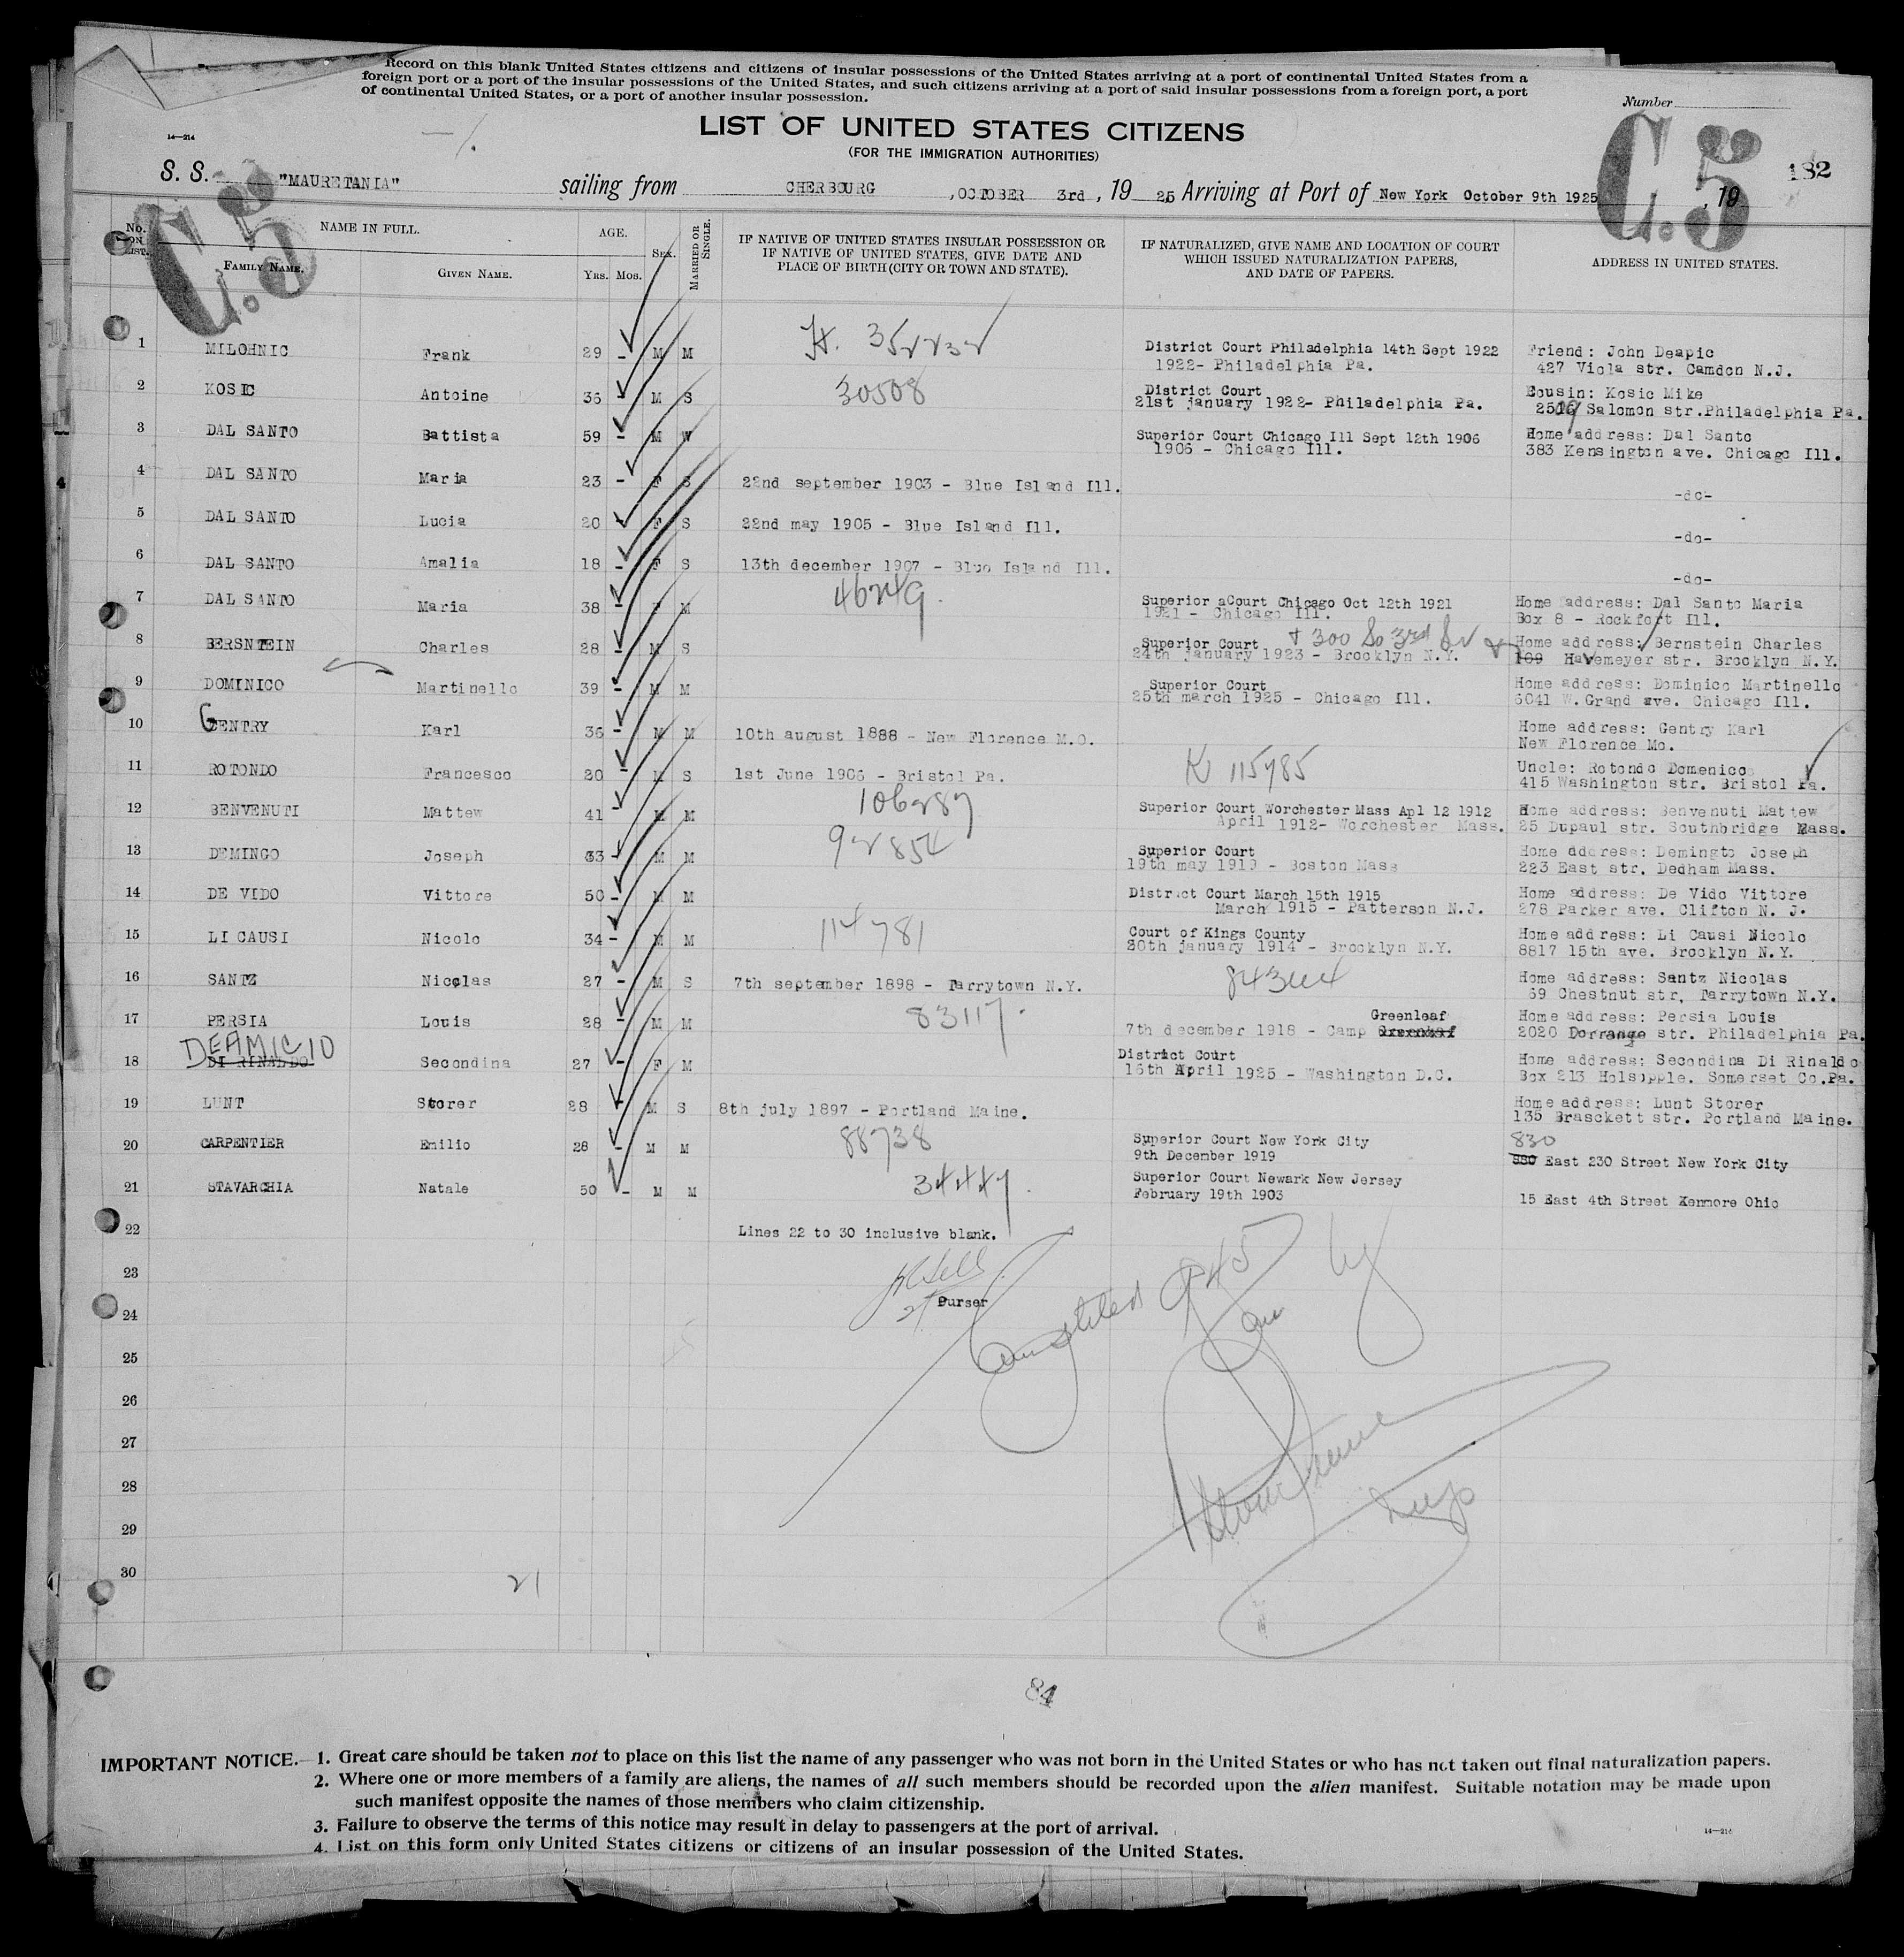 Record on this blank United States citizens and citizens of insular possessions of the United States arriving at a port of continental United States from a
foreign port or a port of the insular possessions of the United States, and such citizens arriving at a port of said insular possessions from a foreign port, a port
of continental United States, or a port of another insular possession.
Number
14—214
LIST OF UNITED STATES CITIZENS
(FOR THE IMMIGRATION AUTHORITIES)
C.5 C.5 182
S. S. "MAURETANIA" sailing from CHERBOURG , OCTOBER 3rd , 19 25, Arriving at Port of New York October 9th 1925 , 19
No. ON LIST. NAME IN FULL. AGE. SEX. MARRIED OR SINGLE. IF NATIVE OF UNITED STATES INSULAR POSSESSION OR IF NATIVE OF UNITED STATES, GIVE DATE AND PLACE OF BIRTH (CITY OR TOWN AND STATE). IF NATURALIZED, GIVE NAME AND LOCATION OF COURT WHICH ISSUED NATURALIZATION PAPERS, AND DATE OF PAPERS. ADDRESS IN UNITED STATES.
FAMILY NAME. GIVEN NAME. YRS. MOS.
1 MILOHNIC Frank 29 - M M District Court Philadelphia 14th Sept 1922 Friend: John Deapic
1922- Philadelphia Pa. 427 Viola str. Camden N.J.
2 KOSIC Antoine 36 - M S 30508 District Court Cousin: Kosic Mike
21st january 1922- Philadelphia Pa. Salomon str. Philadelphia Pa.
3 DAL SANTO Battista 59 - M W Superior Court Chicago Ill Sept 12th 1906 Home address: Dal Santo
1906 - Chicago Ill. 383 Kensington ave. Chicago Ill.
4 DAL SANTO Maria 23 - F S 22nd september 1903 - Blue Island Ill. -do-
5 DAL SANTO Lucia 20 - F S 22nd may 1905 - Blue Island Ill. -do-
6 DAL SANTO Amalia 18 - F S 13th december 1907 - Blue Island Ill. -do-
7 DAL SANTO Maria 38 - F M 46249 Superior aCourt Chicago Oct 12th 1921 Home address: Dal Santo Maria
1921 - Chicago Ill. Box 8 - Rockfort Ill.
8 BERSNTEIN Charles 28 - M S Superior Court 300 So 3rd Home address: Bernstein Charles
24th january 1923 - Brooklyn N.Y. 109 Havemeyer str. Brooklyn N.Y.
9 DOMINICO Martinello 39 - M M Superior Court Home address: Dominico Martinello
25th march 1925 - Chicago Ill. 6041 W. Grand ave. Chicago Ill.
10 GENTRY Karl 36 - M M 10th august 1888 - New Florence M.O. Home address: Gentry Karl
New Florence Mo.
11 ROTONDO Francesco 20 - M S 1st June 1906 - Bristol Pa. 115785 Uncle: Rotondo Domenico
415 Washington str. Bristol Pa.
12 BENVENUTI Mattew 41 - M M 106287 Superior Court Worchester Mass Apl 12 1912 Home address: Benvenuti Mattew
April 1912- Worchester Mass. 25 Dupaul str. Southbridge Mass.
13 DEMINGO Joseph 33 - M M 92854 Superior Court Home address: Demingto Joseph
19th may 1919 - Boston Mass 223 East str. Dedham Mass.
14 DE VIDO Vittore 50 - M M District Court March 15th 1915 Home address: De Vido Vittore
March 1915 - Patterson N.J. 278 Parker ave. Clifton N. J.
15 LI CAUSI Nicolo 34 - M M 114781 Court of Kings County Home address: Li Causi Nicolo
20th january 1914 - Brooklyn N.Y. 8817 15th ave. Brooklyn N.Y.
16 SANTZ Nicolas 27 - M S 7th september 1898 - Tarrytown N.Y. Home address: Santz Nicolas
69 Chestnut str, Tarrytown N.Y.
17 PERSIA Louis 28 - M M 83117 Greenleaf Home address: Persia Louis
7th december 1918 - Camp 2020 Dorrange str. Philadelphia Pa.
DEAMICIO
18 DI RINALDO Secondina 27 - F M District Court Home address: Secondina Di Rinaldo
16th April 1925 - Washington D.C. Box 213 Holsopple. Somerset Co.Pa.
19 LUNT Storer 28 - M S 8th july 1897 - Portland Maine. Home address: Lunt Storer
135 Brasckett str. Portland Maine.
20 CARPENTIER Emilio 28 - M M 88738 Superior Court New York City 830
9th December 1919 East 230 Street New York City
21 STAVARCHIA Natale 50 - M M 34447 Superior Court Newark New Jersey
February 19th 1903 15 East 4th Street Kenmore Ohio
22 Lines 22 to 30 inclusive blank.
23
Purser
24
25
26
27
28
29
30
21
84
IMPORTANT NOTICE.— 1. Great care should be taken not to place on this list the name of any passenger who was not born in the United States or who has not taken out final naturalization papers.
2. Where one or more members of a family are aliens, the names of all such members should be recorded upon the alien manifest. Suitable notation may be made upon
such manifest opposite the names of those members who claim citizenship.
3. Failure to observe the terms of this notice may result in delay to passengers at the port of arrival.
14—214
4. List on this form only United States citizens or citizens of an insular possession of the United States.